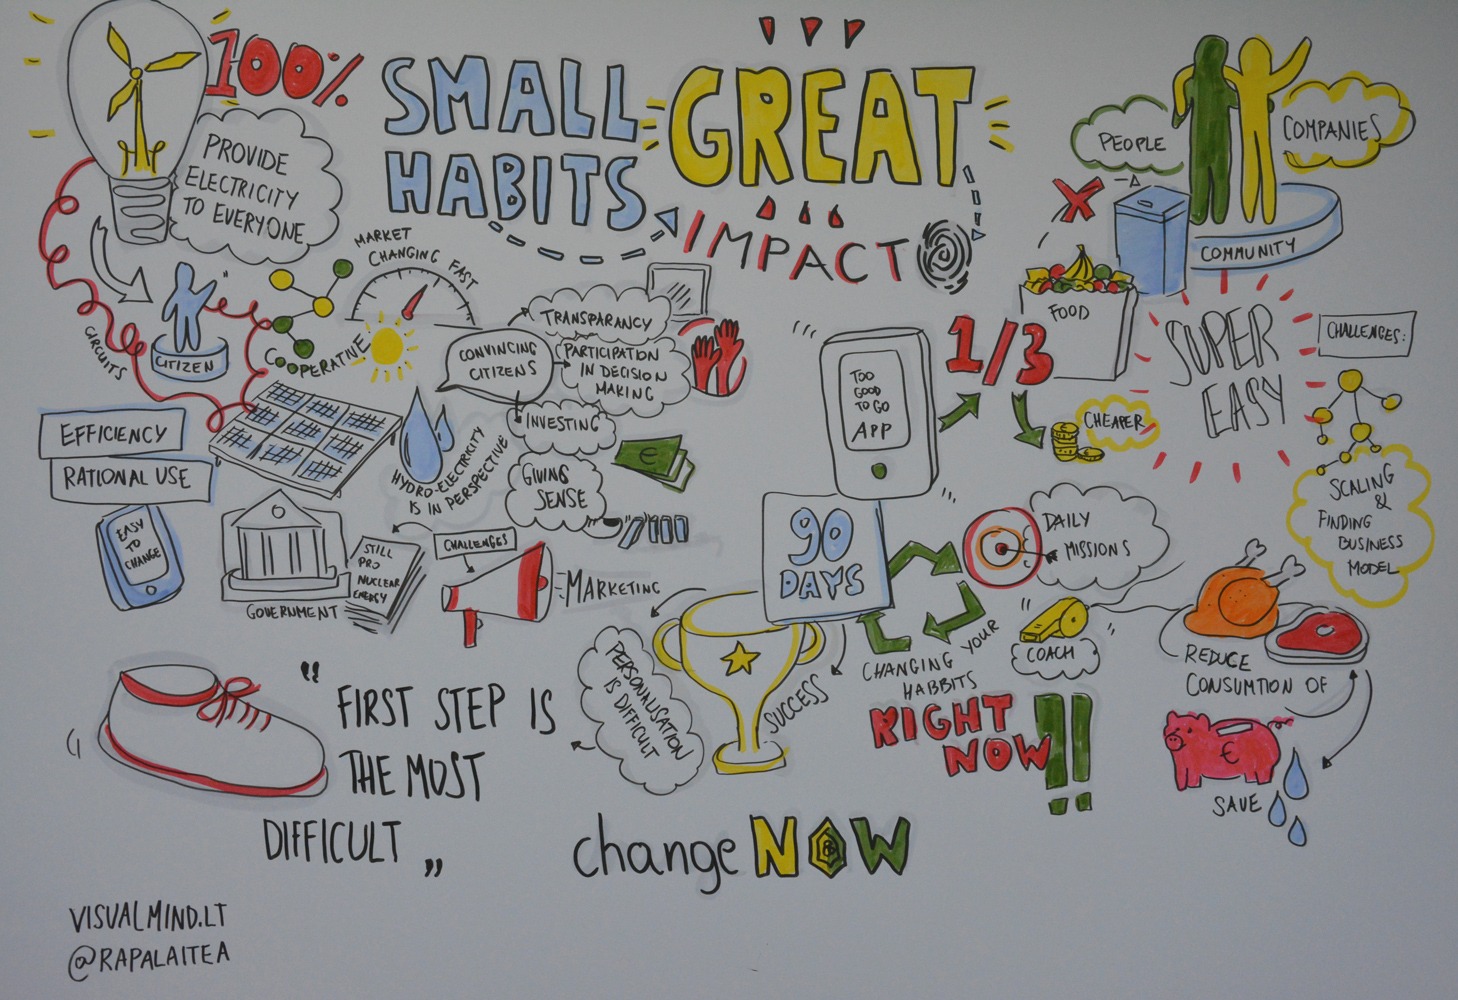 100%
PROVIDE
ELECTRICITY
TO EVERYONE
SMALL
HABITS
GREAT
IMPACT
PEOPLE
COMPANIES
COMMUNITY
MARKET
CHANGING FAST
CITIZEN
CIRCUITS
COOPERATIVE
CONVINCING
CITIZENS
TRANSPARANCY
PARTICIPATION
IN DECISION
MAKING
INVESTING
€
GIVING
SENSE
EFFICIENCY
RATIONAL USE
EASY
TO
CHANGE
HYDRO-ELECTRICITY
IS IN PERSPECTIVE
GOVERNMENT
STILL
PRO
NUCLEAR
ENERGY
CHALLENGES
MARKETING
TOO
GOOD
TO GO
APP
1/3
FOOD
CHEAPER
SUPER
EASY
CHALLENGES:
SCALING
&
FINDING
BUSINESS
MODEL
90
DAYS
DAILY
MISSIONS
COACH
CHANGING YOUR
HABBITS
RIGHT
NOW!!
SUCCESS
PERSONALISATION
IS DIFFICULT
REDUCE
CONSUMTION OF
€
SAVE
"FIRST STEP IS
THE MOST
DIFFICULT„
changeNOW
VISUALMIND.LT
@RAPALAITEA